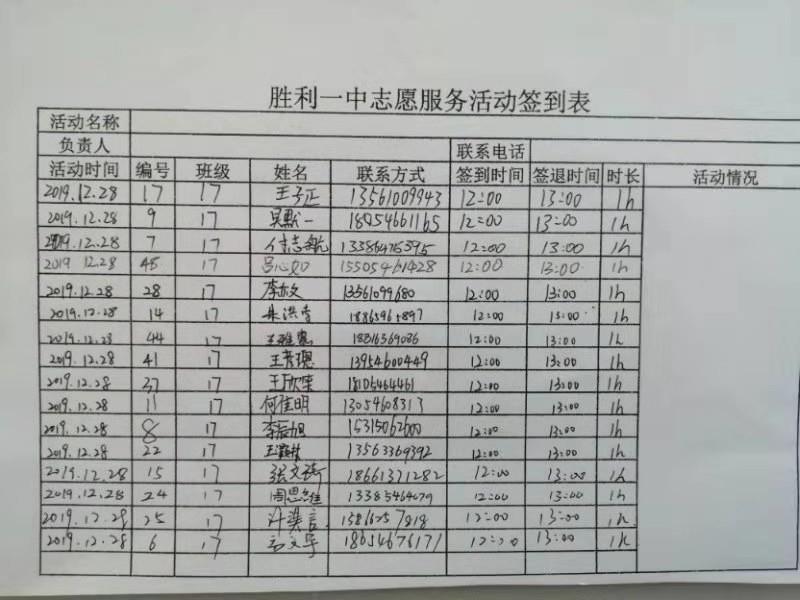 胜利一中志愿服务活动签到表
活动名称
负责人 联系电话
活动时间 编号 班级 姓名 联系方式 签到时间 签退时间 时长 活动情况
2019.12.28 17 17 王子正 13561009943 12:00 13:00 1h
2019.12.28 9 17 吴默一 18954661165 12:00 13:00 1h
2019.12.28 7 17 付志航 12:00 13:00 1h
2019 12.28 45 17 吕心如 15505461428 12:00 13:00 1h
2019.12.28 28 17 13561099680 12:00 13:00 1h
2019.12.28 14 17 朱洪莹 12:00 13:00 1h
2019.12.28 44 17 12:00 13:00 1h
2019.12.28 41 17 13954600449 12:00 13:00 1h
2019.12.28 37 17 王欣荣 12:00 13:00 1h
2019.12.28 11 17 何佳明 13054608313 12:00 13:00 1h
2019.12.28 8 17 李辰旭 15315062600 12:00 13:00 1h
2019.12.28 22 17 13563369392 12:00 13:00 1h
2019.12.28 15 17 18661371282 12:00 13:00 1h
2019.12.28 24 17 周思维 12:00 13:00 1h
2019.12.28 25 17 12:00 13:00 1h
2019.12.28 6 17 13:00 1h